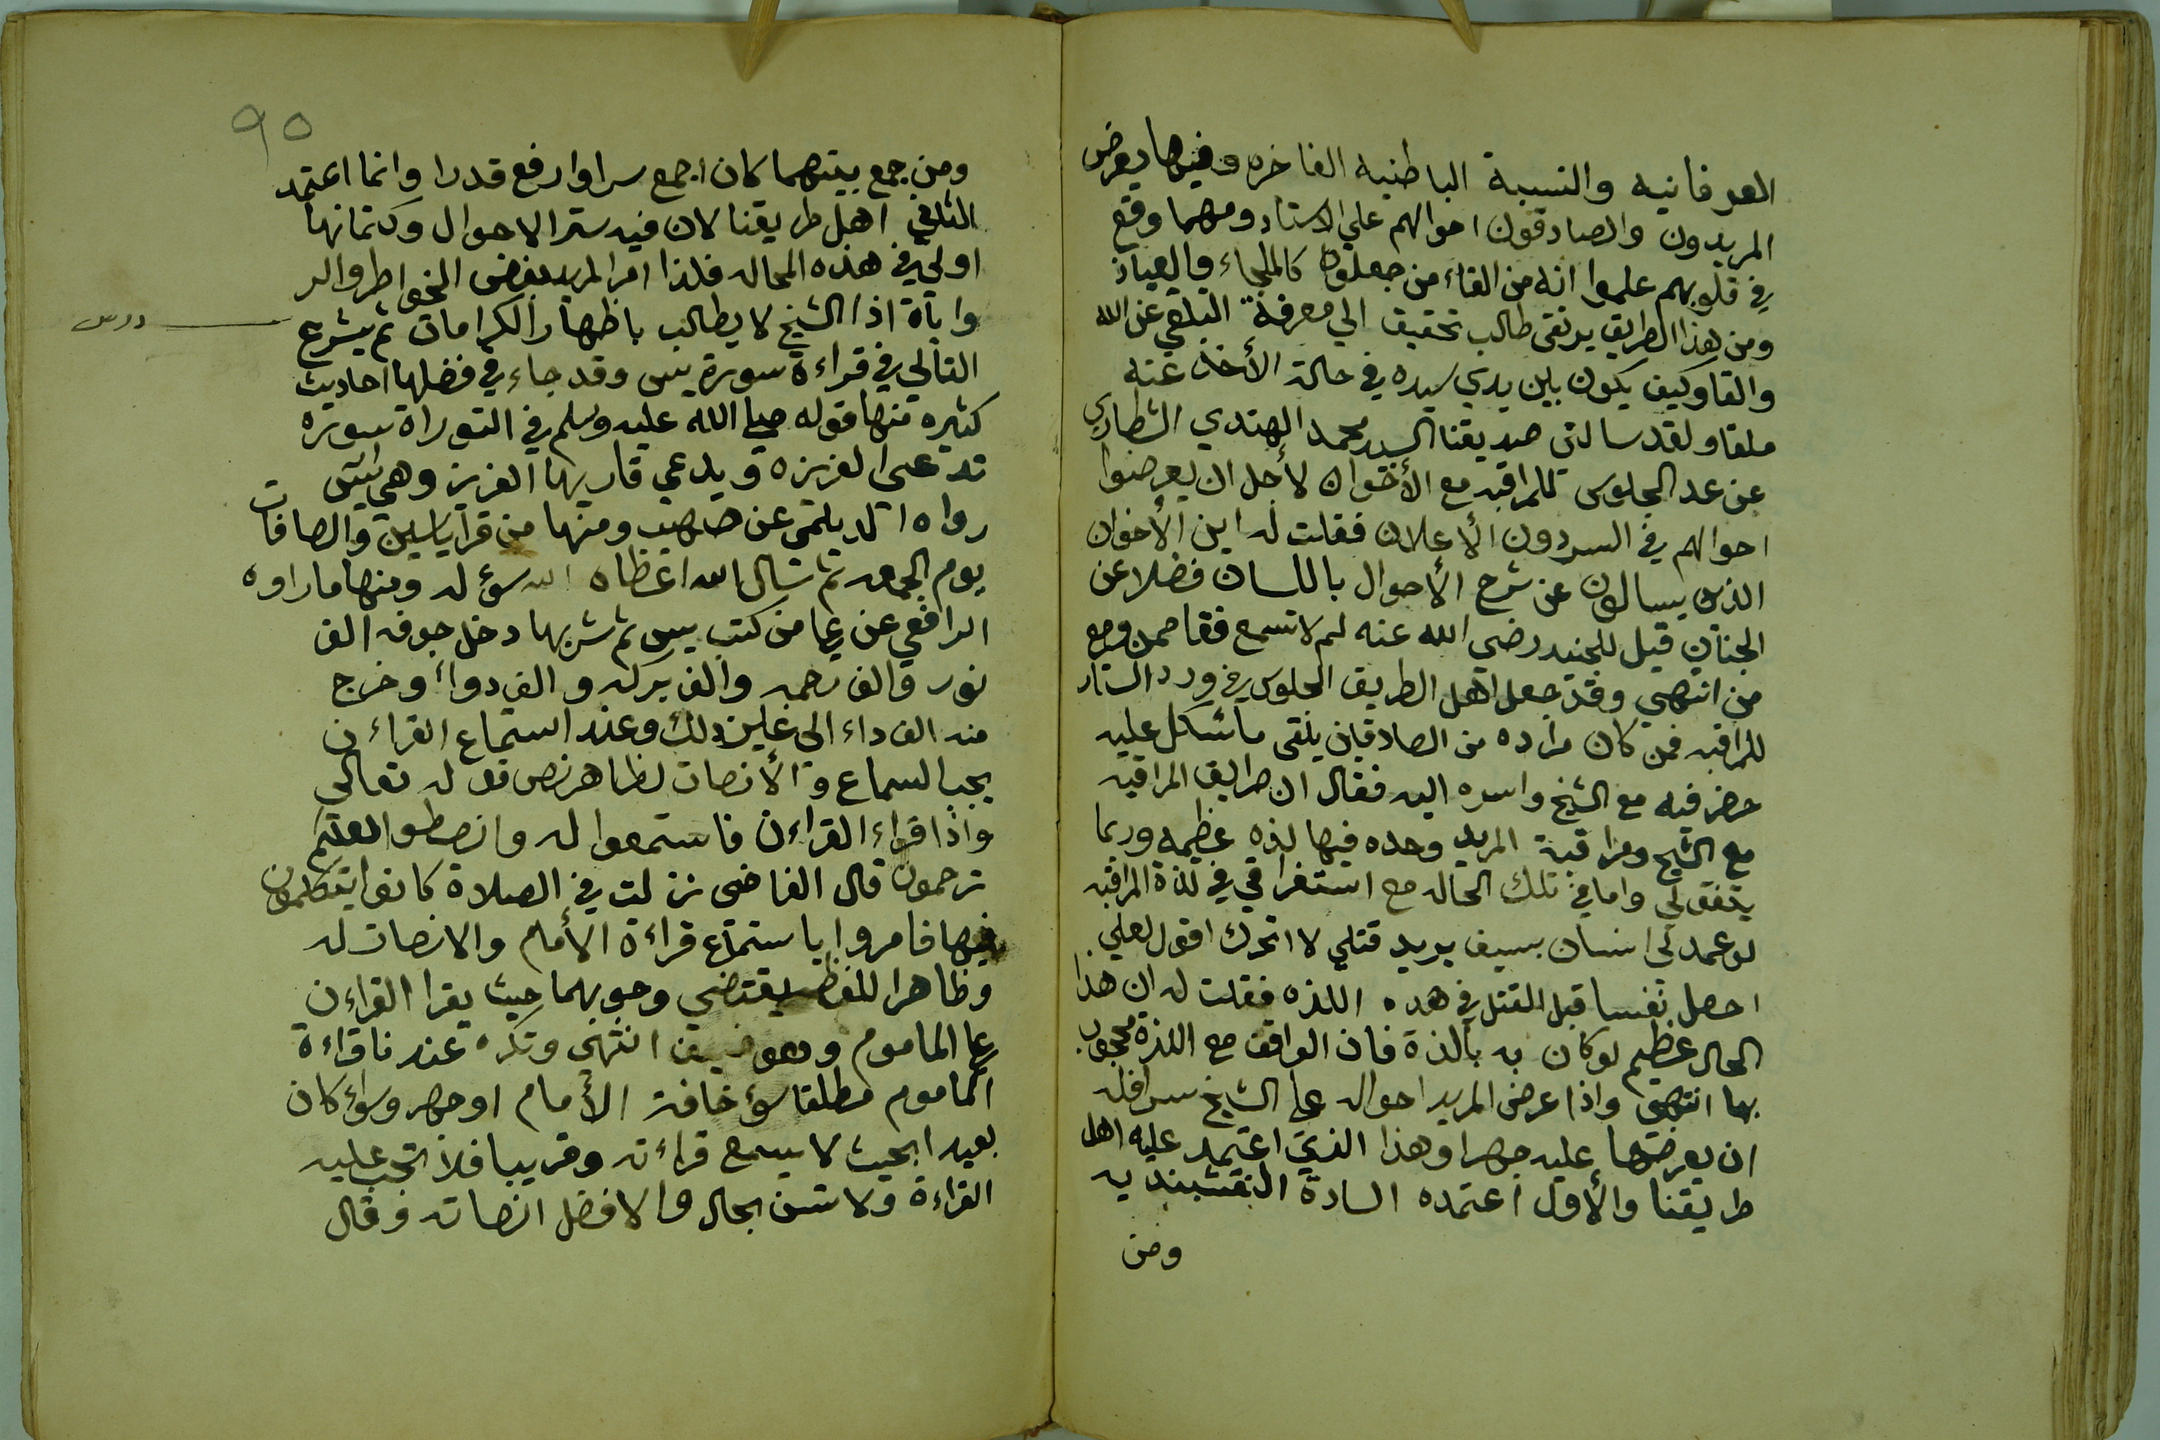 العرفانيه والنسبة الباطنيه الفاخره وفيها يعرض
المريدون والصادقون احوالهم علي الاستاد ومهما وقع
في قلوبهم علموا انه من القاء من جعلوه كالملجاء والعياذ
ومن هذا الطريق يرتقي طالب تحقيق الي معرفة التلقي عن الله
والقا وكيف يكون بين يدي سيده في حالة الأخذ عنه
ملقا ولقد سالني صديقنا السيد محمد الهندي الشطاري
عن عد الجلوس للمراقبه مع الأخوان لأجل ان يعرضوا
احوالهم في السر دون الأعلان فقلت له اين الأخوان
الذين يسالون عن شرح الأحوال باللسان فضلا عن
الجنان قيل للجنيد رضي الله عنه لم لا تسمع فقا ممن ومع
من انتهي وقد جعل اهل الطريق الجلوس في ورد الستار
للمراقبه فمن كان مراده من الصادقين يلقي ما شكل عليه
حضر فيه مع الشيخ واسره اليه فقال ان طريق المراقبه
مع الشيخ ومراقبة المريد وحده فيها لذه عظيمه وربما
يتفق لي واما في تلك الحاله مع استغراقي في لذة المراقبه
لو عمد لي انسان بسيف يريد قتلي لا اتحرك اقول لعلي
احصل نفسا قبل القتل في هده اللذه فقلت له ان هذا
الحال عظيم لو كان به بالذة فان الواقف مع اللذة محجوب
بها انتهي واذا عرض المريد احواله علي الشيخ سرا فله
ان يعرضها عليه جهرا وهذا الذي اعتمد عليه اهل
طريقنا والأول اعتمده السادة النقشبنديه
ومن
٩٥
ومن جمع بينهما كان اجمع سرا وارفع قدرا وانما اعتمد
الثاني اهل طريقنا لان فيه ستر الاحوال وكتمانها
اولي في هذه الحاله فلذا امر المريد بعرض الخواطر والر
وا ياة اذا الشيخ لا يطالب باظهار الكرامات ثم يشرع
درس
التالي في قراءة سورة يس وقد جاء في فضلها احاديث
كثيره منها قوله صلي الله عليه وسلم في التوراة سورة
تدعي العزيزه ويدعي قاريها العزيز وهي يس
رواه الديلمي عن صهيب ومنها من قرا ياسين والصافات
يوم الجمعه ثم سال الله اعطاه الله سؤله ومنها ما راوه
الرافعي عن علي من كتب يس ثم شربها دخل جوفه الف
نور والف رحمه والف بركه والف دواء وخرج
منه الف داء الي غير ذلك وعند استماع القراءن
يجب السماع والأنصات لظاهر نص قوله تعالي
واذا قراء القراءن فاستمعوا له وانصطوا لعلكم
ترحمون قال القاضي نزلت في الصلاة كانوا يتكلمون
فيها فامروا باستماع قراءة الأمام والانصات له
وظاهر اللفظ يقتضي وجوبهما حيث يقرا القراءن
علي الماموم وهو ضعيف انتهي وتكره عندنا قراءة
الماموم مطلقا سؤ خافة الأمام او جهر وسؤ كان
بعيدا بحيث لا يسمع قراءته وقريبا فلا تجب عليه
القراءة ولا تسن بحال والافضل انصاته وقال